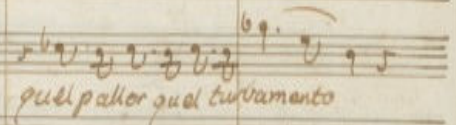 quel pallor quel turvamento